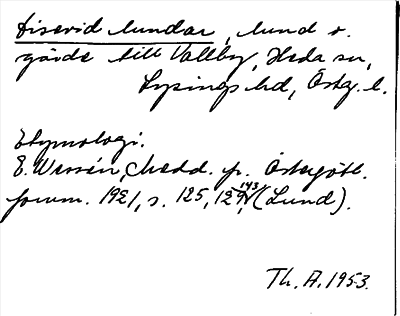 Disevid lundar, lund o.
gärde till Vallby, Heda sn,
Lysings hd, Östg. l.
Etymologi.
E. Wessén, Medd. fr. Östergötl.
fornm. 1921, s. 125, 129, 143 (Lund).
Th. A. 1953.